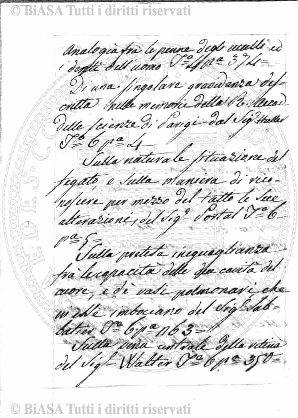 © BIASA Tutti i diritti riservati
analogia fra le penne degli uccelli ed
i denti dell'uomo T.º 4 p.ª 374 –
Di una singolare gravidanza des
critta nelle memorie della R. Accad
delle scienze di Parigi dal Sig.
T.º 6 p.ª 4 –
Sulla naturale situazione del
fegato e sulla maniera di rico-
noscere per mezzo del tatto le sue
alterazioni, del Sig.º Portal T.º 6
p.ª 5 –
Sulla pretesa ineguaglianza
fra le capacità delle due cavità del
cuore, e di vasi polmonari, che
in esse imboccano del Sig.º Sab-
batier T.º 6 p.ª 63 –
Sulla vena centrale della retina
del Sig.º Walter T.º 6 p.ª 350 –